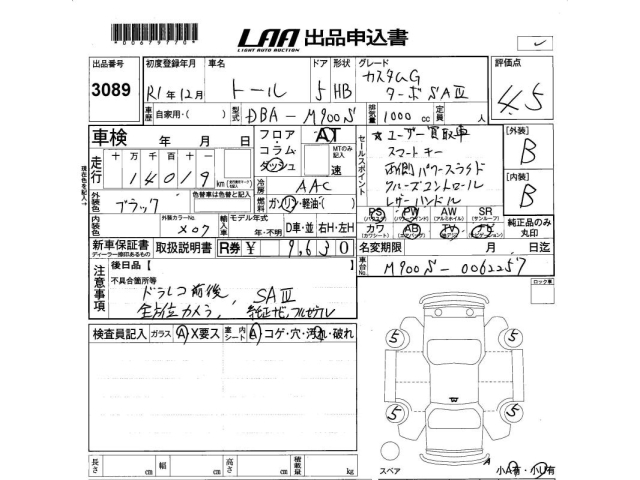 *00679770*
LAA 出品申込書
LIGHT AUTO AUCTION
出品番号 初度登録年月 車名 ドア 形状 グレード 評価点
3089 R1年12月 トール 5 HB カスタムG ターボSAⅢ 4.5
車歴 自家用・( ) 型式 DBA-M900S 排気量 1000cc 定員 人
車検 年 月 日 フロア・コラム・ダッシュ AT MTのみ記入 速
走行 十万千百十 14019 km
冷房 AAC
セールスポイント
★ユーザー買取車
スマートキー
両側パワースライド
クルーズコントロール
レザーハンドル
【外装】 B
【内装】 B
外装色 ブラック 色替車は色替と記入 燃料 ガソリン・軽油・( )
内装色 外装カラーNo. X07 輸入車 モデル年式 年・不明 D車・並 右H・左H
PS PW AW SR
(パワステ) (パワーウィンド) (アルミホイル) (サンルーフ)
カワ AB TV ナビ
(カワシート) (エアバッグ) (ナビゲーション)
純正品のみ丸印
新車保証書 取扱説明書 R券 ¥ 9,630 名変期限 月 日迄
ディーラー捺印あるもの
車台No. M900S-0062257
注意事項 後日品【 】
不具合箇所等
ドラレコ前後, SAⅢ
全方位カメラ, 純正ナビ,フルセグTV
ロック事
検査員記入 ガラス A X要ス 室内シート A コゲ・穴・汚れ・破れ
5 5
5 5
A
長さ cm 幅 cm 高さ cm 積載量 kg
スペア 小A有・小U有
現在色を記入↑